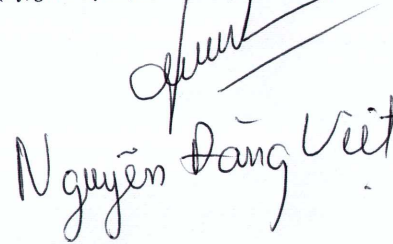 Nguyễn Đăng Việt